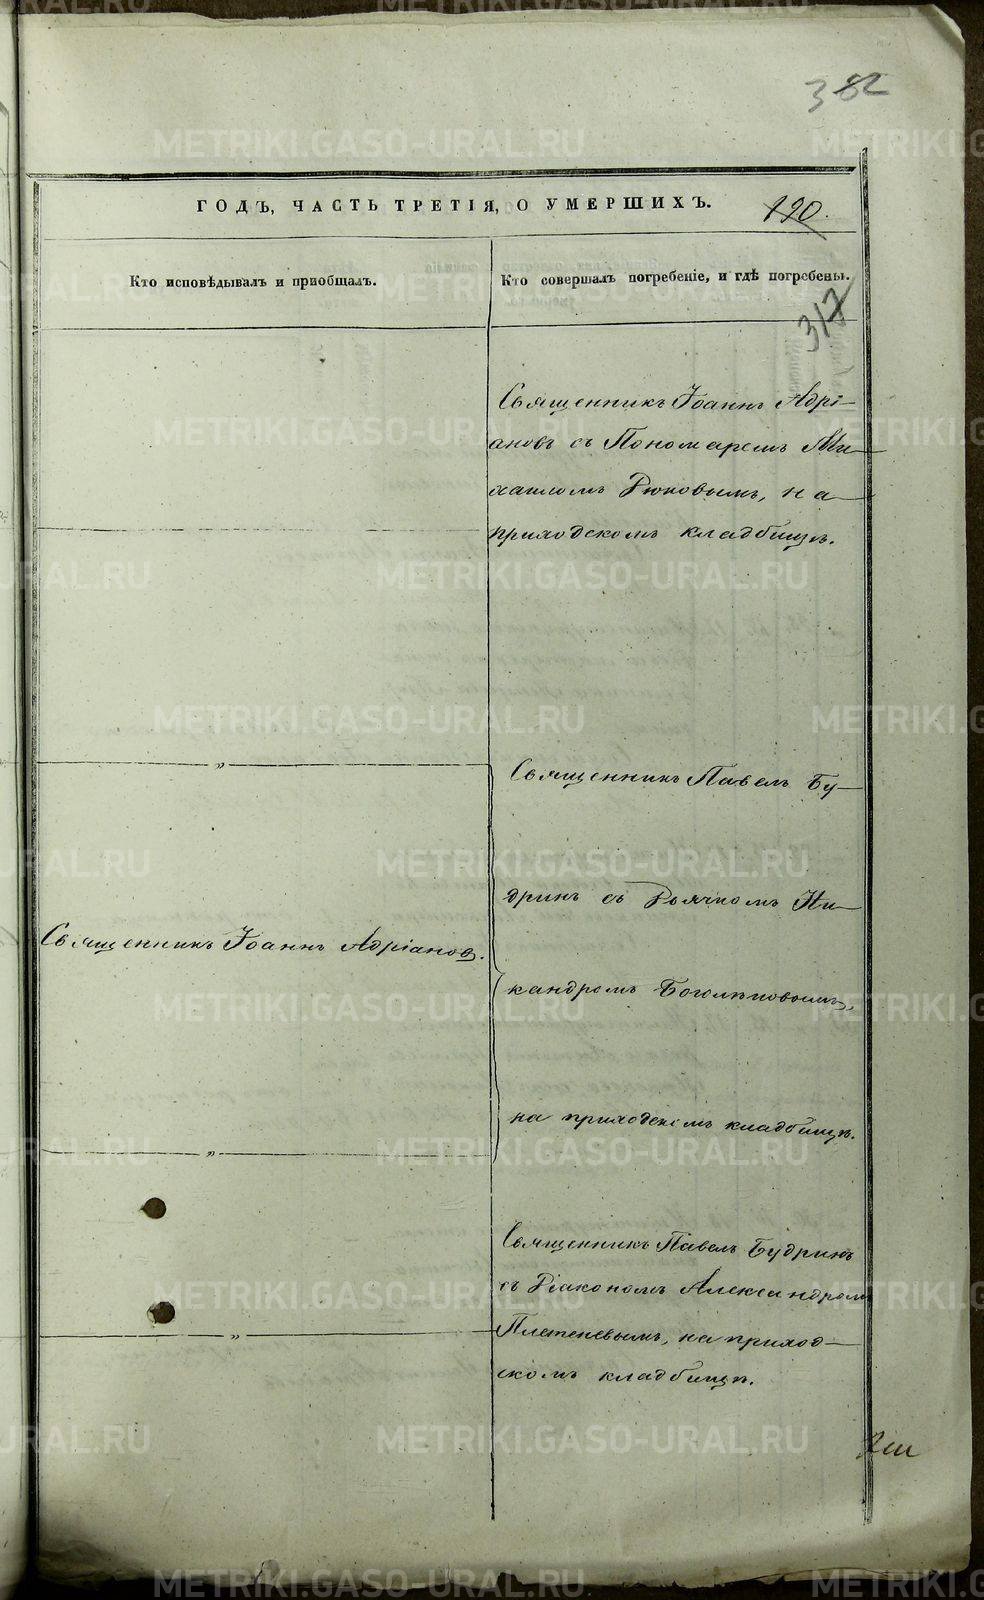 382
ГОДЪ, ЧАСТЬ ТРЕТІЯ, О УМЕРШИХЪ.
190.
Кто исповѣдывалъ и приобщалъ.
Кто совершалъ погребеніе, и гдѣ погребены.
317
Священникъ Іоаннъ Адрі-
ановъ съ Пономаремъ Ми-
хаиломъ Рюковымъ, на
приходскомъ кладбищѣ.
"
Священникъ Іоаннъ Адріановъ.
"
"
Священникъ Павелъ Бу-
дринъ съ Дьячкомъ Ни-
кандромъ Боголѣповымъ,
на приходскомъ кладбищѣ.
Священникъ Павелъ Будринъ
съ Діакономъ Александромъ
Плетеневымъ, на приход-
скомъ кладбищѣ.
METRIKI.GASO-URAL.RU